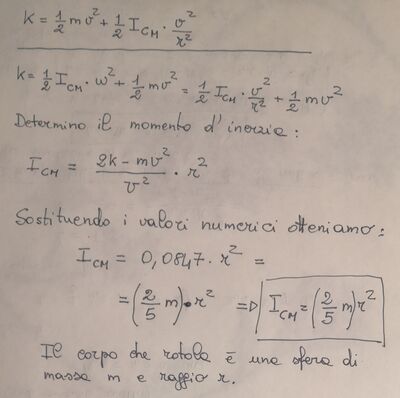 K = 1/2 mv² + 1/2 I_CM · v²/r²
K = 1/2 I_CM · ω² + 1/2 mv² = 1/2 I_CM · v²/r² + 1/2 mv²
Determino il momento d'inerzia:
I_CM = (2K - mv²)/v² · r²
Sostituendo i valori numerici otteniamo:
I_CM = 0,0847 · r² =
= (2/5 m) · r² => I_CM = (2/5 m) r²
Il corpo che rotola è una sfera di
massa m e raggio r.